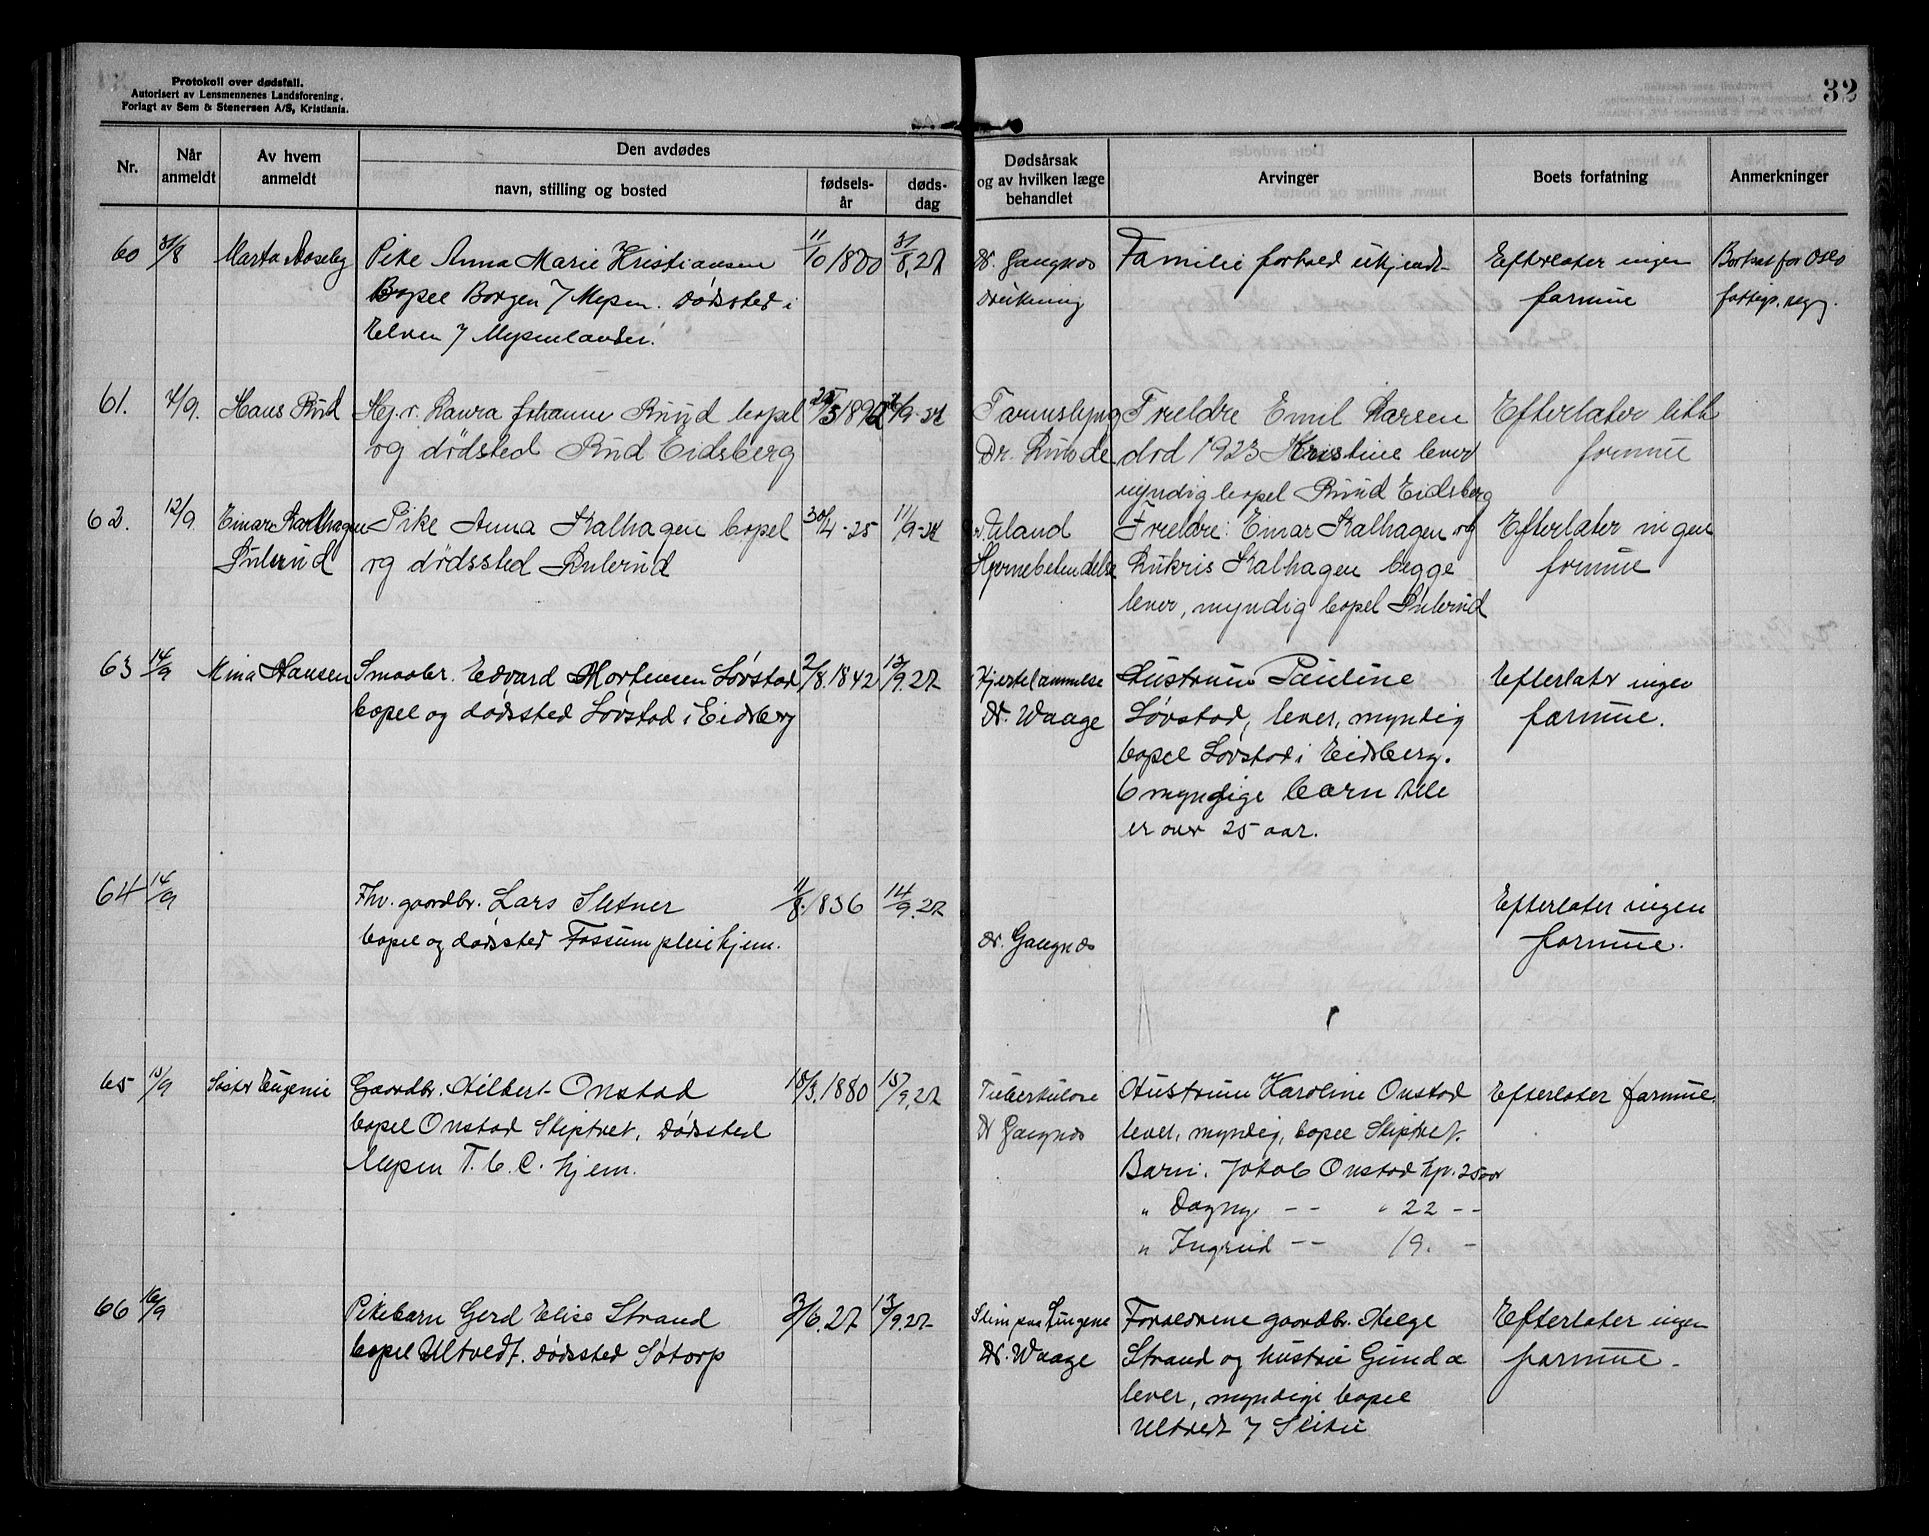 Protokoll over dødsfall.
Autorisert av Lensmennenes Landsforening.
Forlagt av Sem & Stenersen A/S, Kristiania.
32
Nr.
Når anmeldt
Av hvem anmeldt
Den avdødes
navn, stilling og bosted
fødsels-år
døds-dag
Dødsårsak og av hvilken læge behandlet
Arvinger
Boets forfatning
Anmerkninger
60 31/8 Marta Aaseby Pike Anna Marie Kristiansen 11/10 1880 31/8.27 Dr. Gangnæs Familie forhold ukjendt Efterlater ingen Bortsat for Oslo
Bopel Borgen i Mysen. Dødssted i Drukning formue
Elven i Mysenlandet.
61. 7/9. Hans Rud Hj.r. Laura Johanne Ruud bopel 25/5 1892 Tarmslyng Foreldre Emil Larsen Efterlater litt
og dødsted Rud Eidsberg Dr. Lunde død 1923 Kristine lever formue
myndig bopel Ruud Eidsberg
62. 12/9. Einar Kalhagen Pike Anna Kalhagen bopel 30/4-25 11/9-27 Foreldre: Einar Kalhagen og Efterlater ingen
og dødssted Hjernebetendelse Kalhagen begge formue
lever, myndig bopel
63 14/9 Mina Hansen Smaabr. Edvard Mortensen Løvstad 2/8.1842 13/9.27 Hjertelammelse Hustrun Pauline Efterlater ingen
bopel og dødssted Løvstad i Eidsberg Dr. Waage Løvstad, lever, myndig formue.
bopel Løvstad i Eidsberg.
6 myndige barn Alle
er over 25 aar.
64 14/9 Fhv. gaardbr. Lars Sletner 11/8.1836 14/9.27 Efterlater ingen
bopel og dødssted Fossum pleiehjem. Dr. Gangnæs formue.
65 15/9 Søster Eugenie Gaardbr. Hilbert Onstad 18/3.1880 15/9.27 Tuberkulose Hustrun Karoline Onstad Efterlater formue.
bopel Onstad Skiptvet, Dødssted Dr Gangnæs lever, myndig, bopel Skiptvet.
Mysen T.b.C. hjem. Barn: Jakob Onstad 25 aar
" Dagny -- " 22 --
" Ingrid -- 19. -
66 16/9 Pikebarn Gerd Elise Strand 3/6.27 13/9.27 Slim paa Lungene Foreldrene gaardbr. Helge Efterlater ingen
bopel Ultvedt. Dødssted Søtorp Dr. Waage Strand og hustru Gunda formue.
lever, myndige bopel
Ultvedt i